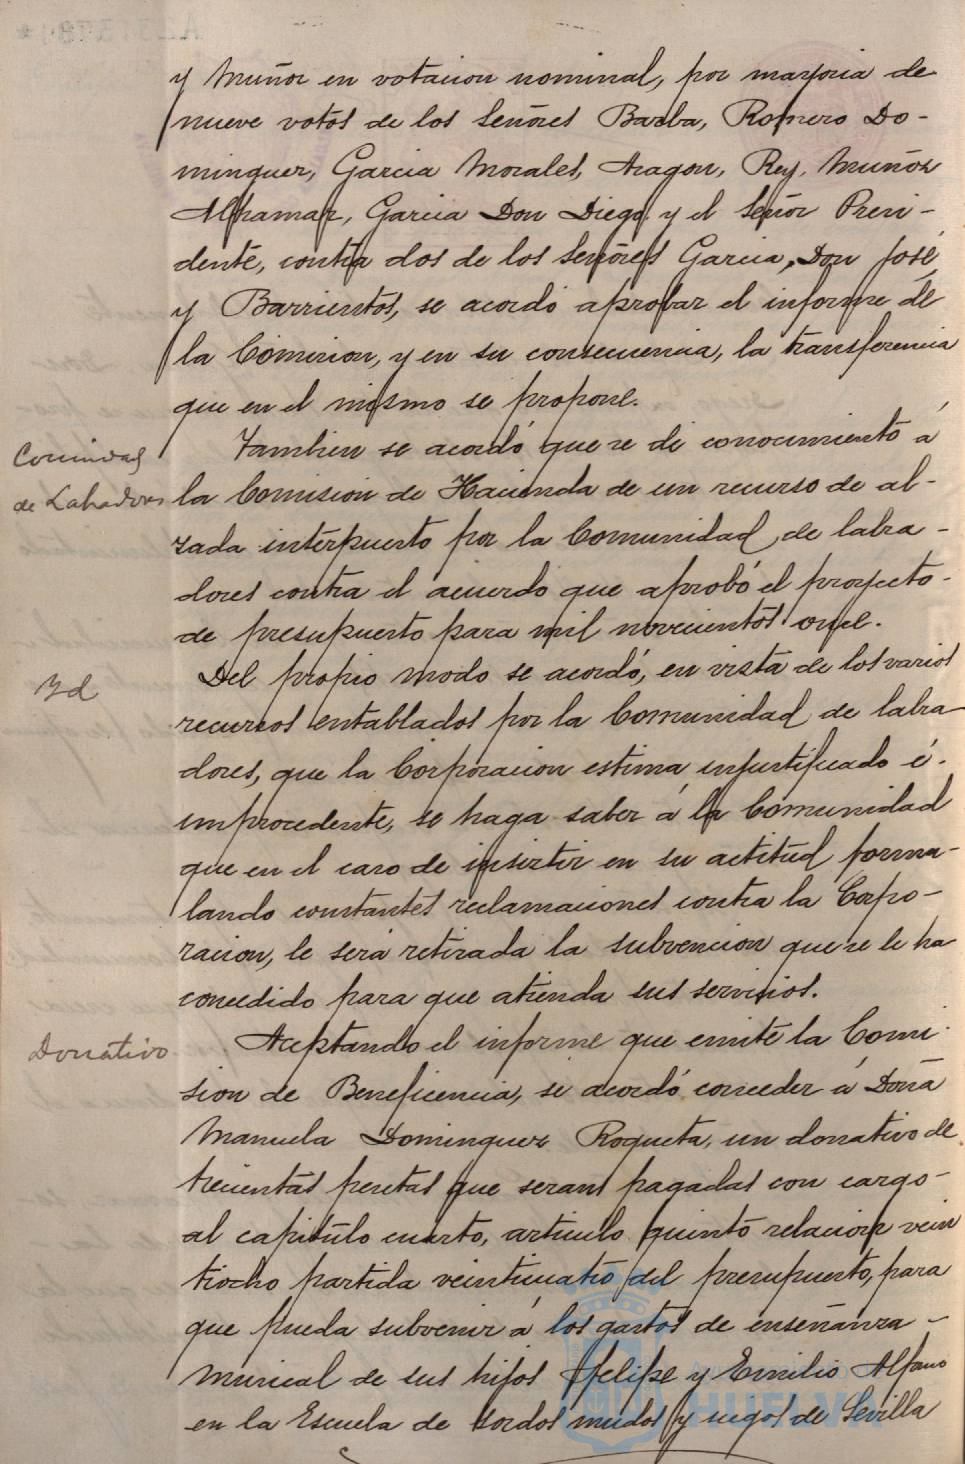 y Muñoz en votacion nominal, por mayoria de
nueve votos de los Señores Barba, Romero Do-
minguez, Garcia Morales, Aragon, Rey, Muñoz
Alhamar, Garcia Don Diego y el Señor Presi-
dente, contra dos de los Señores Garcia, Don José
y Barrientos, se acordó aprobar el informe de
la Comision, y en su consecuencia, la transferencia
que en el mismo se propone.
Comunidad
de Labradores
Tambien se acordó que se dé conocimiento á
la Comision de Hacienda de un recurso de al-
zada interpuesto por la Comunidad de labra-
dores contra el acuerdo que aprobó el proyecto
de presupuesto para mil novecientos once.
Yd
Del propio modo se acordó, en vista de los varios
recursos entablados por la Comunidad de labra-
dores, que la Corporacion estima injustificado é
improcedente, se haga saber á la Comunidad
que en el caso de insistir en su actitud formu-
lando constantes reclamaciones contra la Corpo-
racion, le será retirada la subvencion que se le ha
concedido para que atienda sus servicios.
Donativo
Aceptando el informe que emite la Comi-
sion de Beneficencia, se acordó conceder á Doña
Manuela Dominguez Roqueta, un donativo de
trecientas pesetas que seran pagadas con cargo
al capitulo cuarto, articulo quinto relacion vein
tiocho partida veinticuatro del presupuesto, para
que pueda subvenir á los gastos de enseñanza
musical de sus hijos Felipe y Emilio Alfaro
en la Escuela de sordos mudos y ciegos de Sevilla
Ayuntamiento
HUELVA